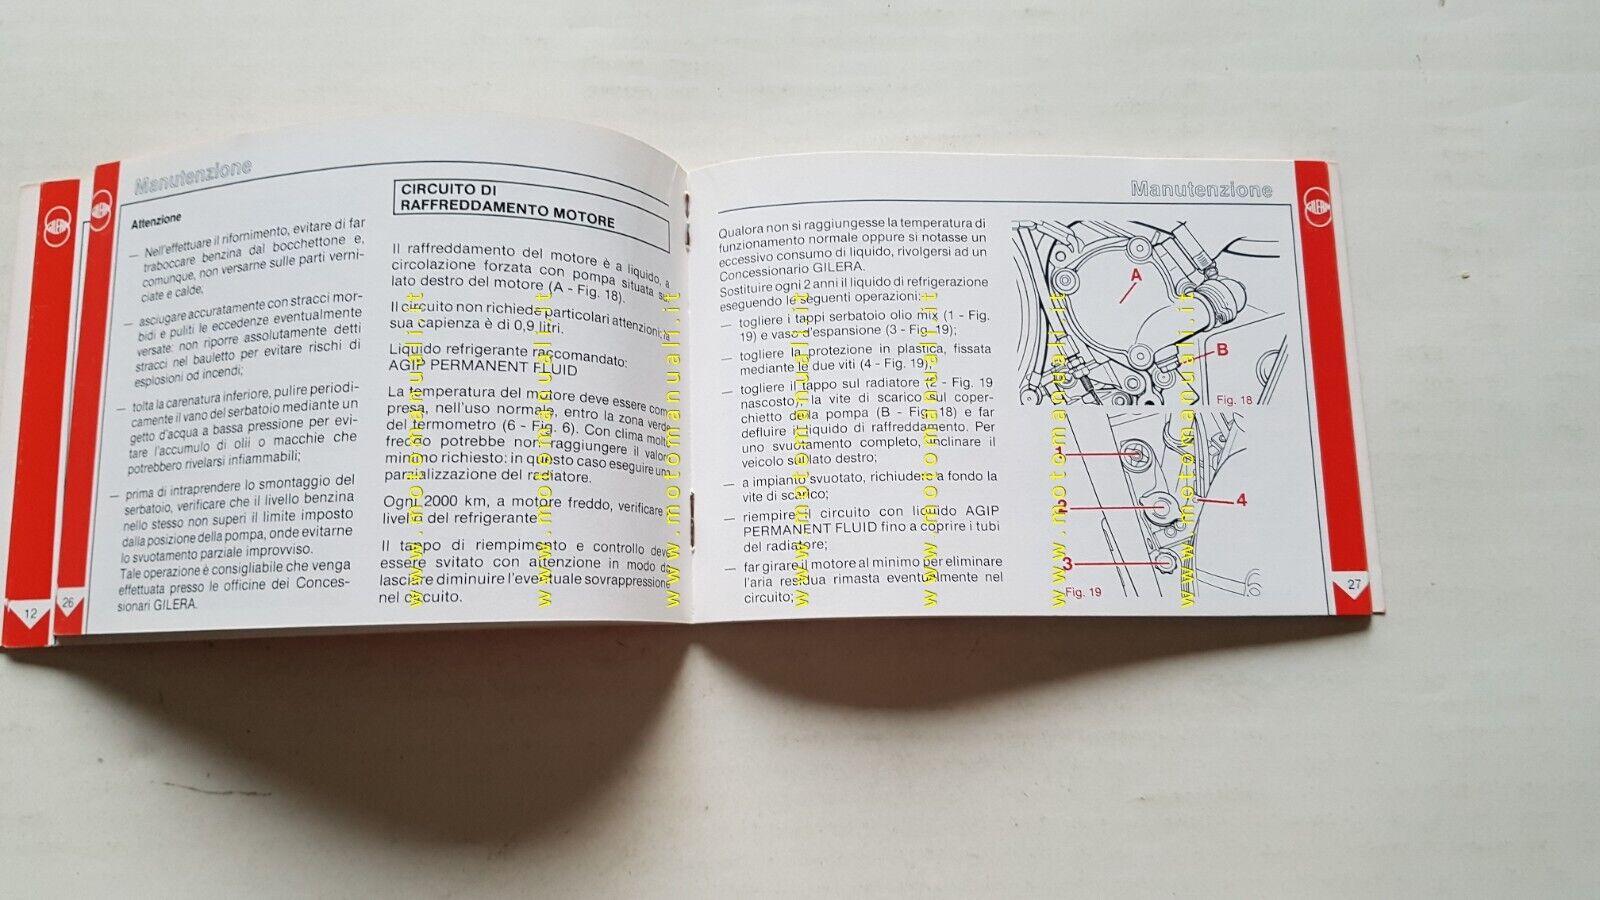 Manutenzione
Attenzione
— Nell'effettuare il rifornimento, evitare di far
traboccare benzina dal bocchettone e,
comunque, non versarne sulle parti verni-
ciate e calde;
— asciugare accuratamente con stracci mor-
bidi e puliti le eccedenze eventualmente
versate: non riporre assolutamente detti
stracci nel bauletto per evitare rischi di
esplosioni od incendi;
— tolta la carenatura inferiore, pulire periodi-
camente il vano del serbatoio mediante un
getto d'acqua a bassa pressione per evi-
tare l'accumulo di olii o macchie che
potrebbero rivelarsi infiammabili;
— prima di intraprendere lo smontaggio del
serbatoio, verificare che il livello benzina
nello stesso non superi il limite imposto
dalla posizione della pompa, onde evitarne
lo svuotamento parziale improvviso.
Tale operazione è consigliabile che venga
effettuata presso le officine dei Conces-
sionari GILERA.
GILERA
12
26
CIRCUITO DI
RAFFREDDAMENTO MOTORE
Il raffreddamento del motore è a liquido, a
circolazione forzata con pompa situata sul
lato destro del motore (A - Fig. 18).
Il circuito non richiede particolari attenzioni; la
sua capienza è di 0,9 litri.
Liquido refrigerante raccomandato:
AGIP PERMANENT FLUID
La temperatura del motore deve essere com-
presa, nell'uso normale, entro la zona verde
del termometro (6 - Fig. 6). Con clima molto
freddo potrebbe non raggiungere il valore
minimo richiesto: in questo caso eseguire una
parzializzazione del radiatore.
Ogni 2000 km, a motore freddo, verificare il
livello del refrigerante.
Il tappo di riempimento e controllo deve
essere svitato con attenzione in modo da
lasciare diminuire l'eventuale sovrappressione
nel circuito.
Manutenzione
Qualora non si raggiungesse la temperatura di
funzionamento normale oppure si notasse un
eccessivo consumo di liquido, rivolgersi ad un
Concessionario GILERA.
Sostituire ogni 2 anni il liquido di refrigerazione
eseguendo le seguenti operazioni:
— togliere i tappi serbatoio olio mix (1 - Fig.
19) e vaso d'espansione (3 - Fig. 19);
— togliere la protezione in plastica, fissata
mediante le due viti (4 - Fig. 19);
— togliere il tappo sul radiatore (2 - Fig. 19
nascosto), la vite di scarico sul coper-
chietto della pompa (B - Fig. 18) e far
defluire il liquido di raffreddamento. Per
uno svuotamento completo, inclinare il
veicolo sul lato destro;
— a impianto svuotato, richiudere a fondo la
vite di scarico;
— riempire il circuito con liquido AGIP
PERMANENT FLUID fino a coprire i tubi
del radiatore;
— far girare il motore al minimo per eliminare
l'aria residua rimasta eventualmente nel
circuito;
A
B
Fig. 18
1
2
3
4
Fig. 19
GILERA
27
www.motomanuali.it
www.motomanuali.it
www.motomanuali.it
www.motomanuali.it
www.motomanuali.it
www.motomanuali.it
www.motomanuali.it